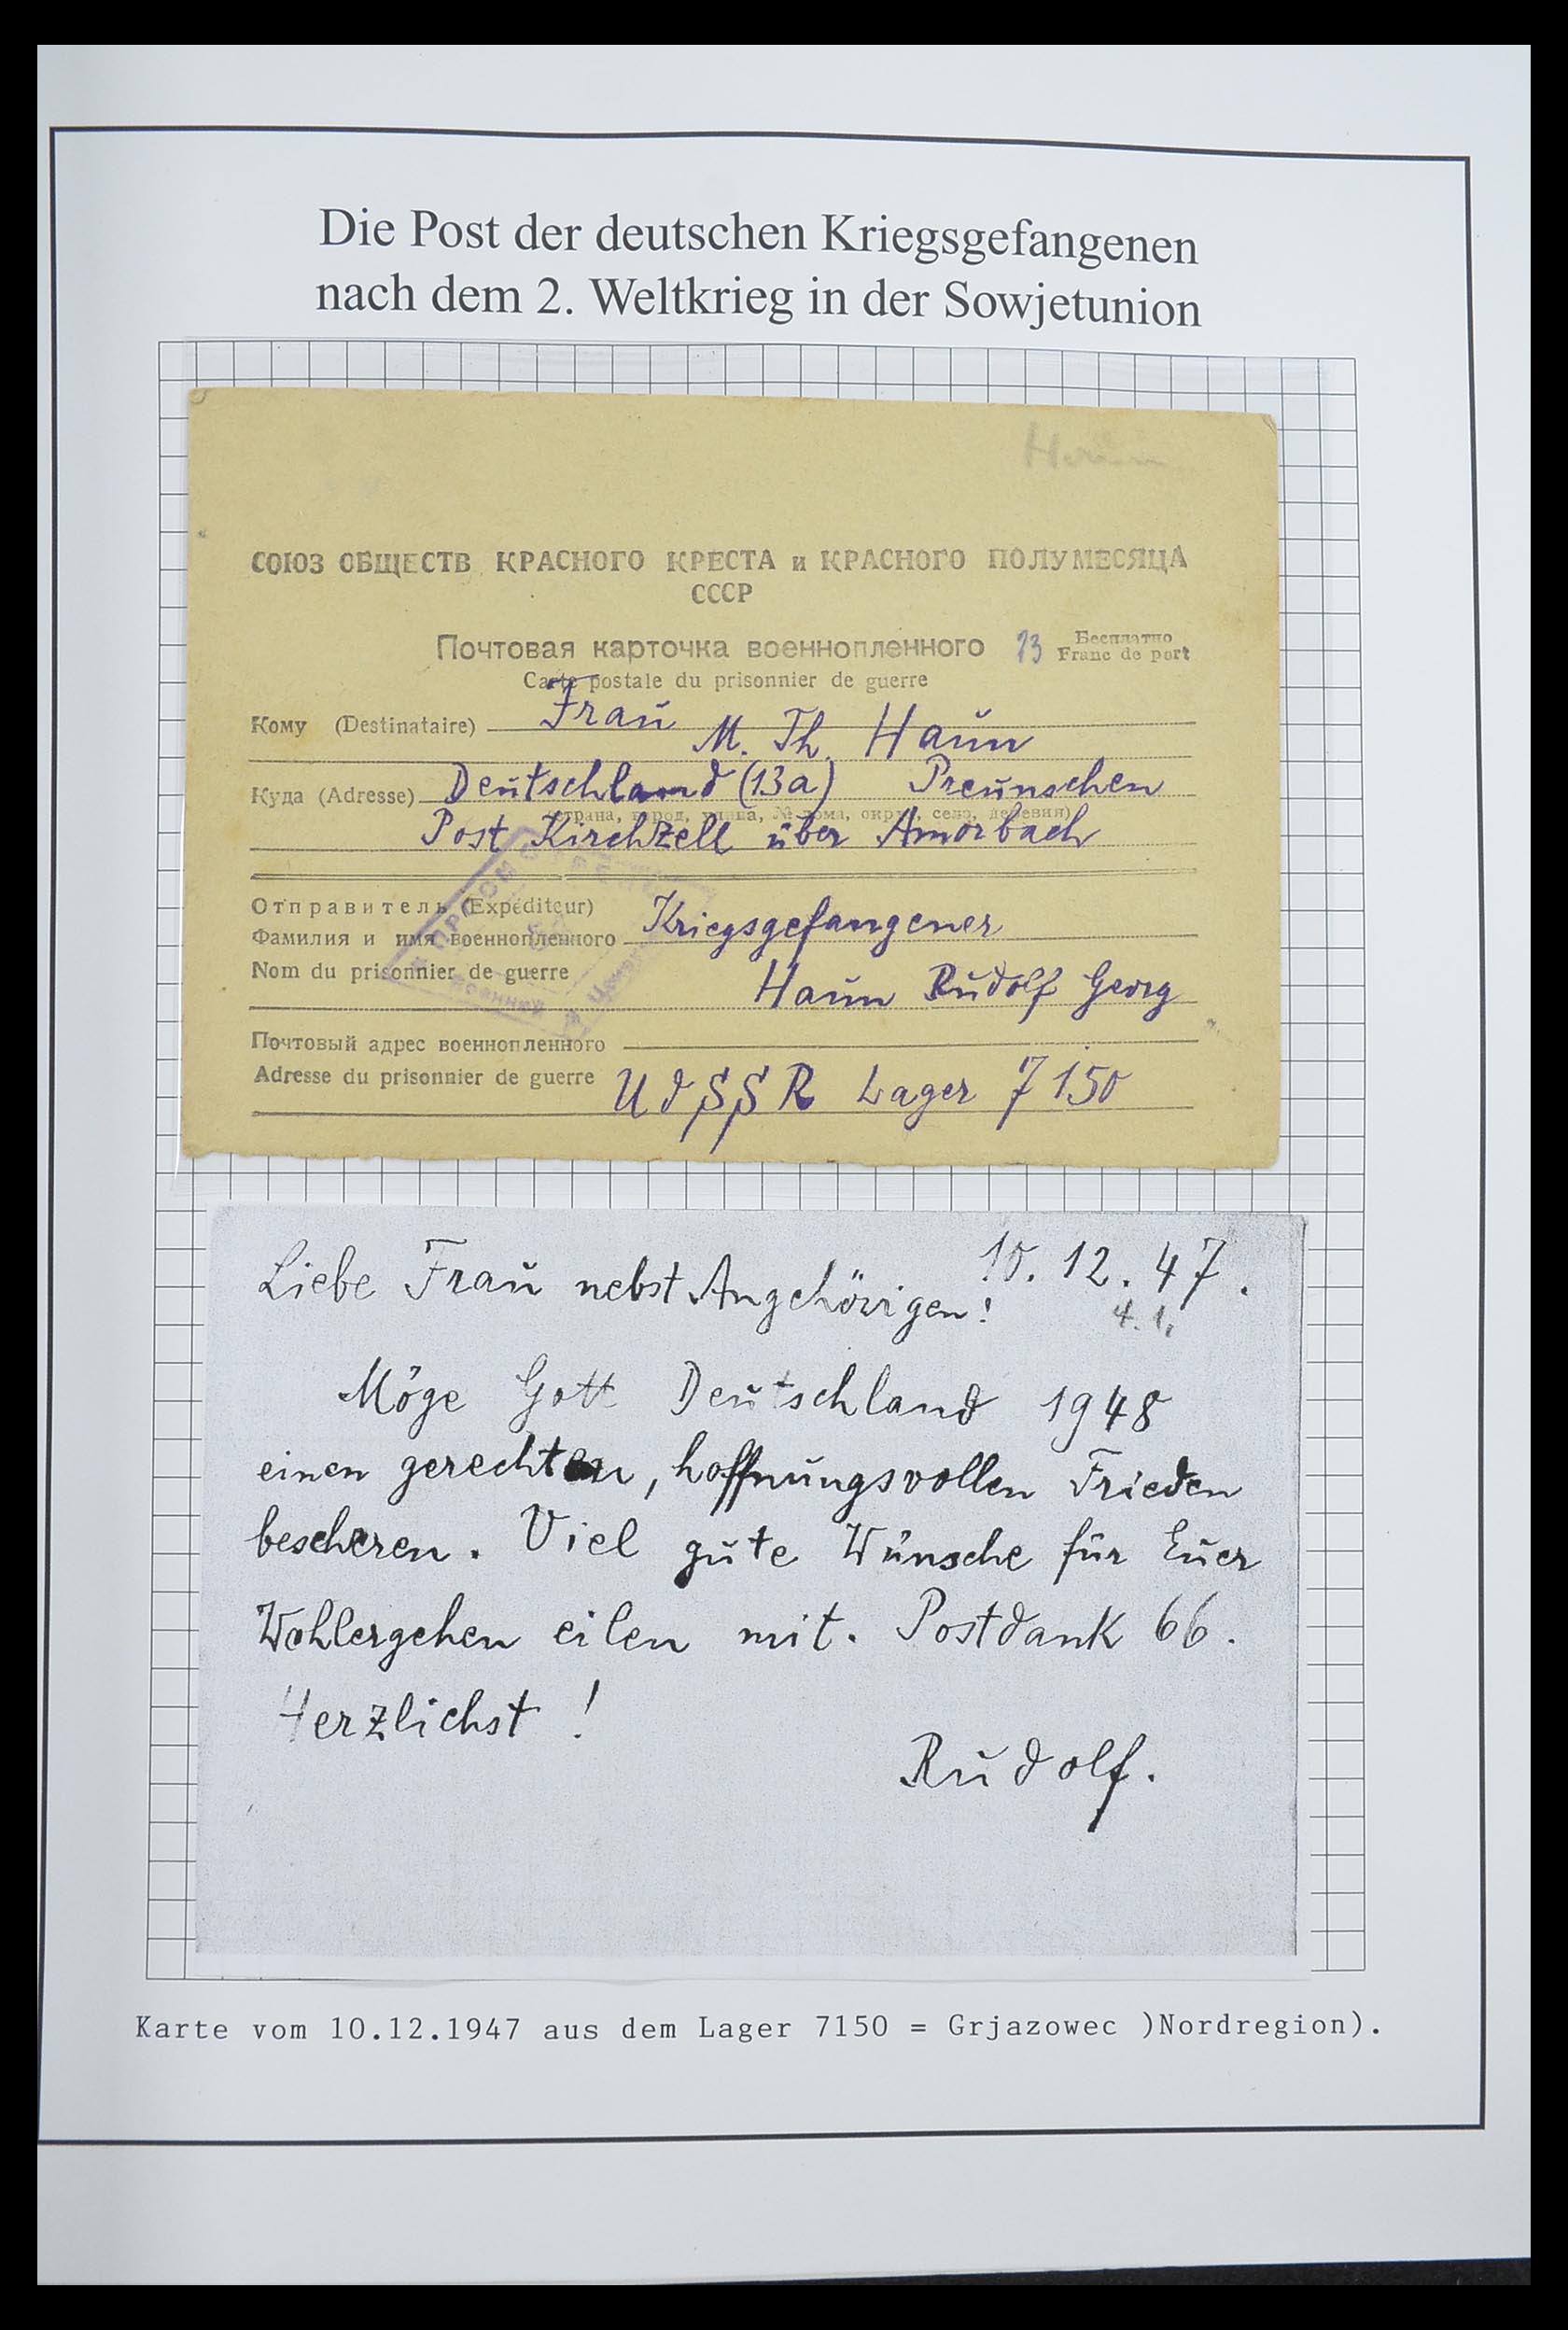 Die Post der deutschen Kriegsgefangenen
nach dem 2. Weltkrieg in der Sowjetunion
СОЮЗ ОБЩЕСТВ КРАСНОГО КРЕСТА и КРАСНОГО ПОЛУМЕСЯЦА
СССР
Почтовая карточка военнопленного 13 Бесплатно
Franc de port
Carte postale du prisonnier de guerre
Кому (Destinataire) Frau
M. Th. Haun
Куда (Adresse) Deutschland (13a) Preunschen
(страна, город, улица, № дома, округ, село, деревня)
Post Kirchzell über Amorbach
Отправитель (Expéditeur)
Фамилия и имя военнопленного Kriegsgefangener
Nom du prisonnier de guerre
Haun Rudolf Georg
Почтовый адрес военнопленного
Adresse du prisonnier de guerre UdSSR Lager 7150
10. 12. 47.
Liebe Frau nebst Angehörigen!
4. 1.
Möge Gott Deutschland 1948
einen gerechten, hoffnungsvollen Frieden
bescheren. Viel gute Wünsche für Euer
Wohlergehen eilen mit. Postdank 66.
Herzlichst !
Rudolf.
Karte vom 10.12.1947 aus dem Lager 7150 = Grjazowec )Nordregion).